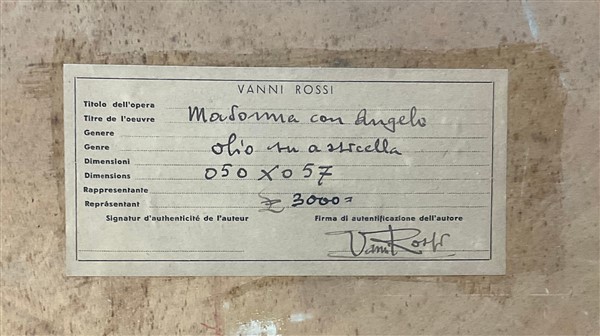 VANNI ROSSI
Titolo dell'opera
Titre de l'oeuvre Madonna con Angelo
Genere
Genre olio su assicella
Dimensioni
Dimensions 050 x 057
Rappresentante
Représentant £ 3000=
Signatur d'authenticité de l'auteur Firma di autentificazione dell'autore
Vanni Rossi